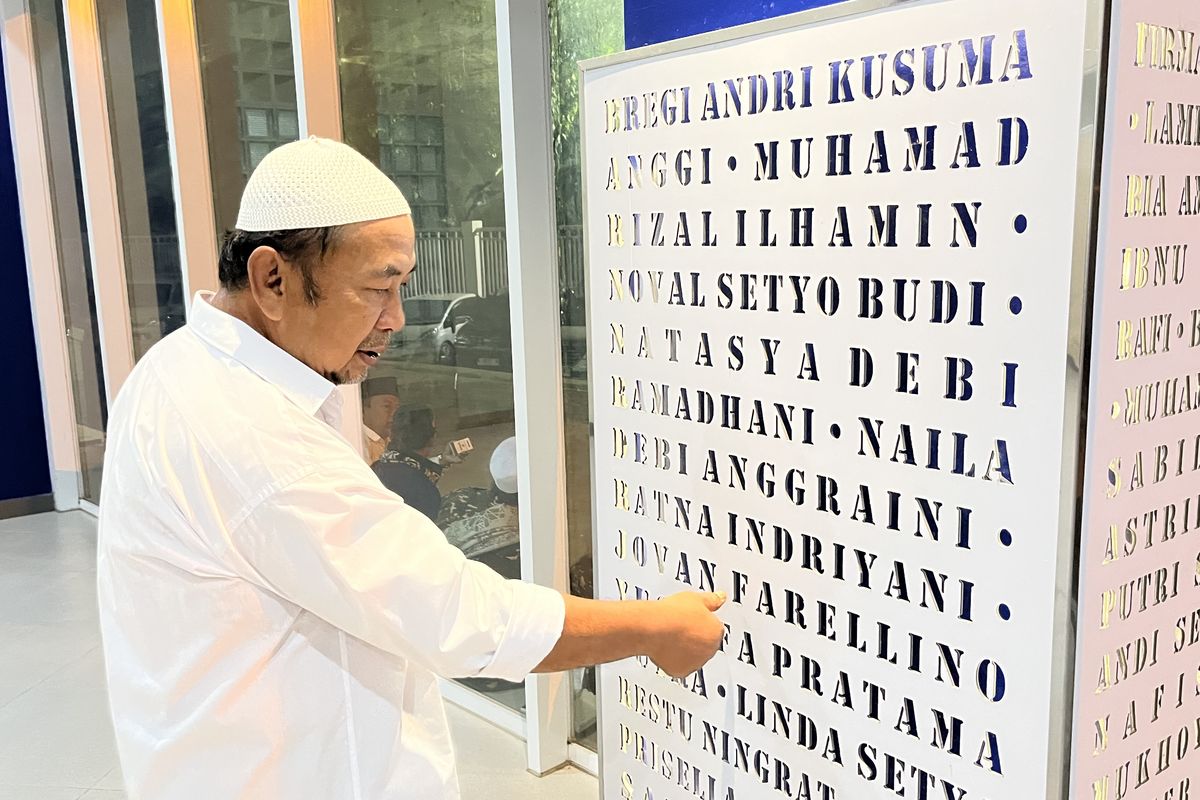 BREGI ANDRI KUSUMA
ANGGI • MUHAMAD
RIZAL ILHAMIN •
NOVAL SETYO BUDI •
NATASYA DEBI
RAMADHANI • NAILA
DEBI ANGGRAINI •
RATNA INDRIYANI •
JOVAN FARELLINO
PRATAMA
• LINDA
RESTU NINGRAT
PRISELIA
• LAMI
BIA
IBNU
RAFI •
PUTRI
ANDI